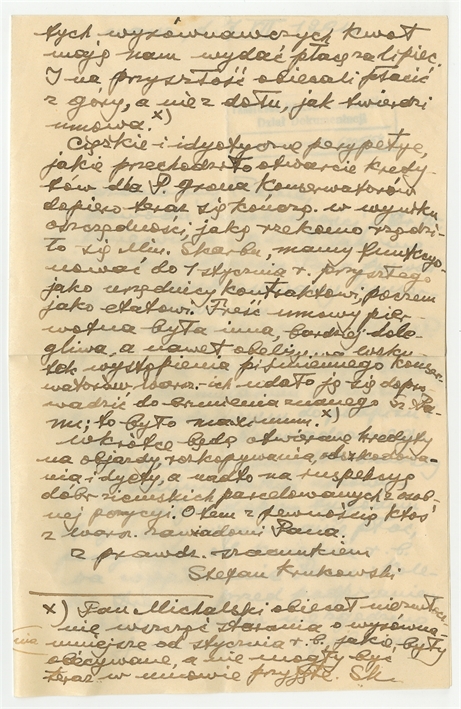 tych wyrównawczych kwot
mają nam wydać płacę za lipiec.
I na przyszłość obiecali płacić
z góry, a nie z dołu, jak twierdzi
umowa. x)
Ciężkie i idyotyczne perypetye,
jakie przechodziło otwarcie kredy-
tów dla P. Grona Konserwatorów
dopiero teraz się kończą. W wyniku
oszczędności, jaką rzekomo rządzi-
ło się Min. Skarbu, mamy funkcyo-
nować do 1 stycznia r. przyszłego
jako urzędnicy kontraktowi, poczem
jako etatowi. Treść umowy pier-
wotna była inna, bardziej dole-
gliwa, a nawet
tek wystąpienia piśmiennego konser-
watorów warsz.-ich udało ją się dopro-
wadzić do brzmienia znanego Sz. Pa-
nu; to było maximum. x)
Wkrótce będą otwierane kredyty
na objazdy, rozkopywania, odszkodowa-
nia i dyety, a nadto na inspekcyę
dóbr ziemskich parcelowanych z osob-
nej pozycyi. O tem z pewnością ktoś
z Warsz. zawiadomi Pana.
Z prawdz. szacunkiem
Stefan Krukowski
x) Pan Michalski obiecał niezwłocz-
nie wszcząć starania o wyrówna-
nie mniejsze od stycznia r. b., jakie były
obiecywane, a nie mogły być
teraz w umowie przyjęte. Sk.